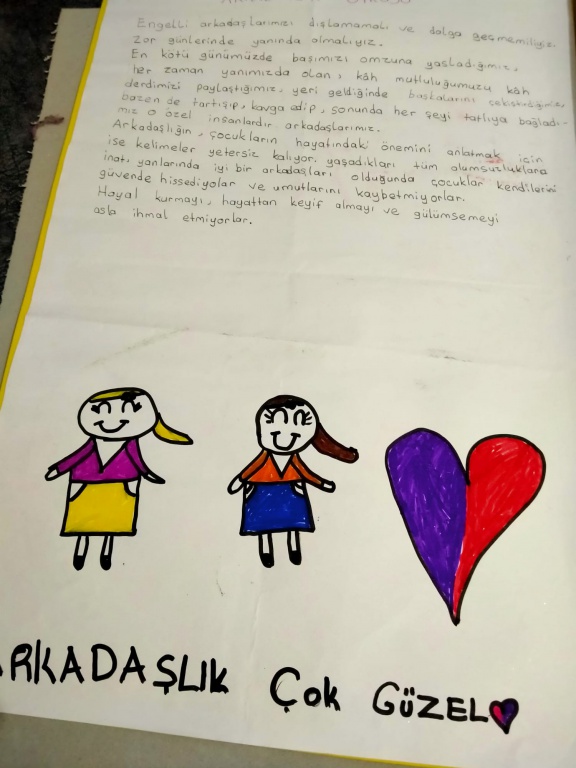 Engelli arkadaşlarımızı dışlamamalı ve dalga geçmemiliyiz.
Zor günlerinde yanında olmalıyız.
En kötü günümüzde başımızı omzuna yasladığımız,
her zaman yanımızda olan, kâh mutluluğumuzu kâh
derdimizi paylaştığımız, yeri geldiğinde başkalarını çekiştirdiğimiz,
bazen de tartışıp, kavga edip, sonunda her şeyi tatlıya bağladı-
mız o özel insanlardır arkadaşlarımız.
Arkadaşlığın, çocukların hayatındaki önemini anlatmak için
ise kelimeler yetersiz kalıyor. yaşadıkları tüm olumsuzluklara
inat, yanlarında iyi bir arkadaşları olduğunda çocuklar kendilerini
güvende hissediyolar ve umutlarını kaybetmiyorlar.
Hayal kurmayı, hayattan keyif almayı ve gülümsemeyi
asla ihmal etmiyorlar.
ARKADAŞLIK Çok GÜZEL